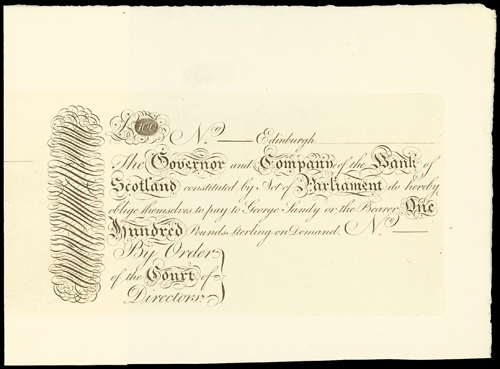 £100 No. Edinburgh
The Governor and Company of the Bank of
Scotland constituted by Act of Parliament do hereby
oblige themselves to pay to George Sandy or the Bearer One
Hundred Pounds Sterling on Demand. No.
By Order
of the Court of
Directors